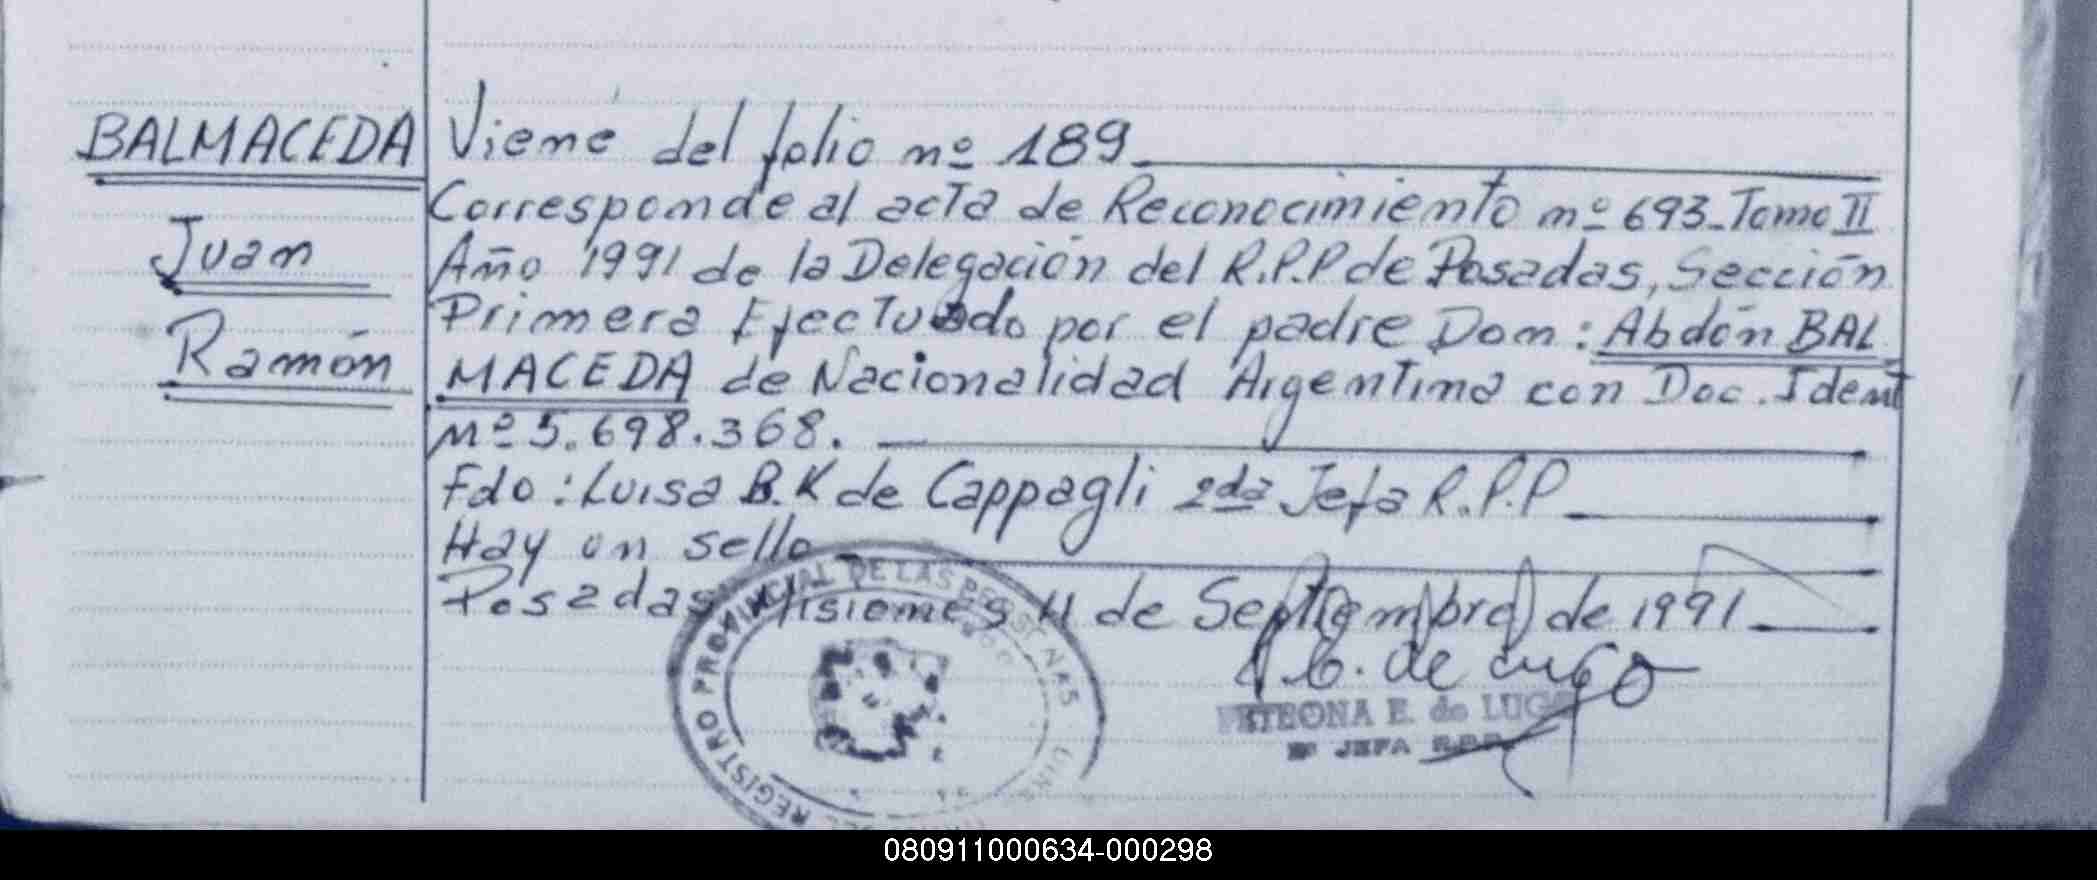 BALMACEDA
Juan
Ramón
Viene del folio nº 189
Corresponde al acta de Reconocimiento nº 693-Tomo II
Año 1991 de la Delegación del R.P.P de Posadas, Sección
Primera Efectuado por el padre Don: Abdón BAL
MACEDA de Nacionalidad Argentina con Doc. Ident
Nº 5.698.368.
Fdo: Luisa B.K de Cappagli 2da Jefa R.P.P
Hay un sello
Posadas Misiones 11 de Septiembre de 1991
REGISTRO PROVINCIAL DE LAS PERSONAS
E. de Lugo
PETRONA E. de LUGO
JEFA R.P.P.
080911000634-000298